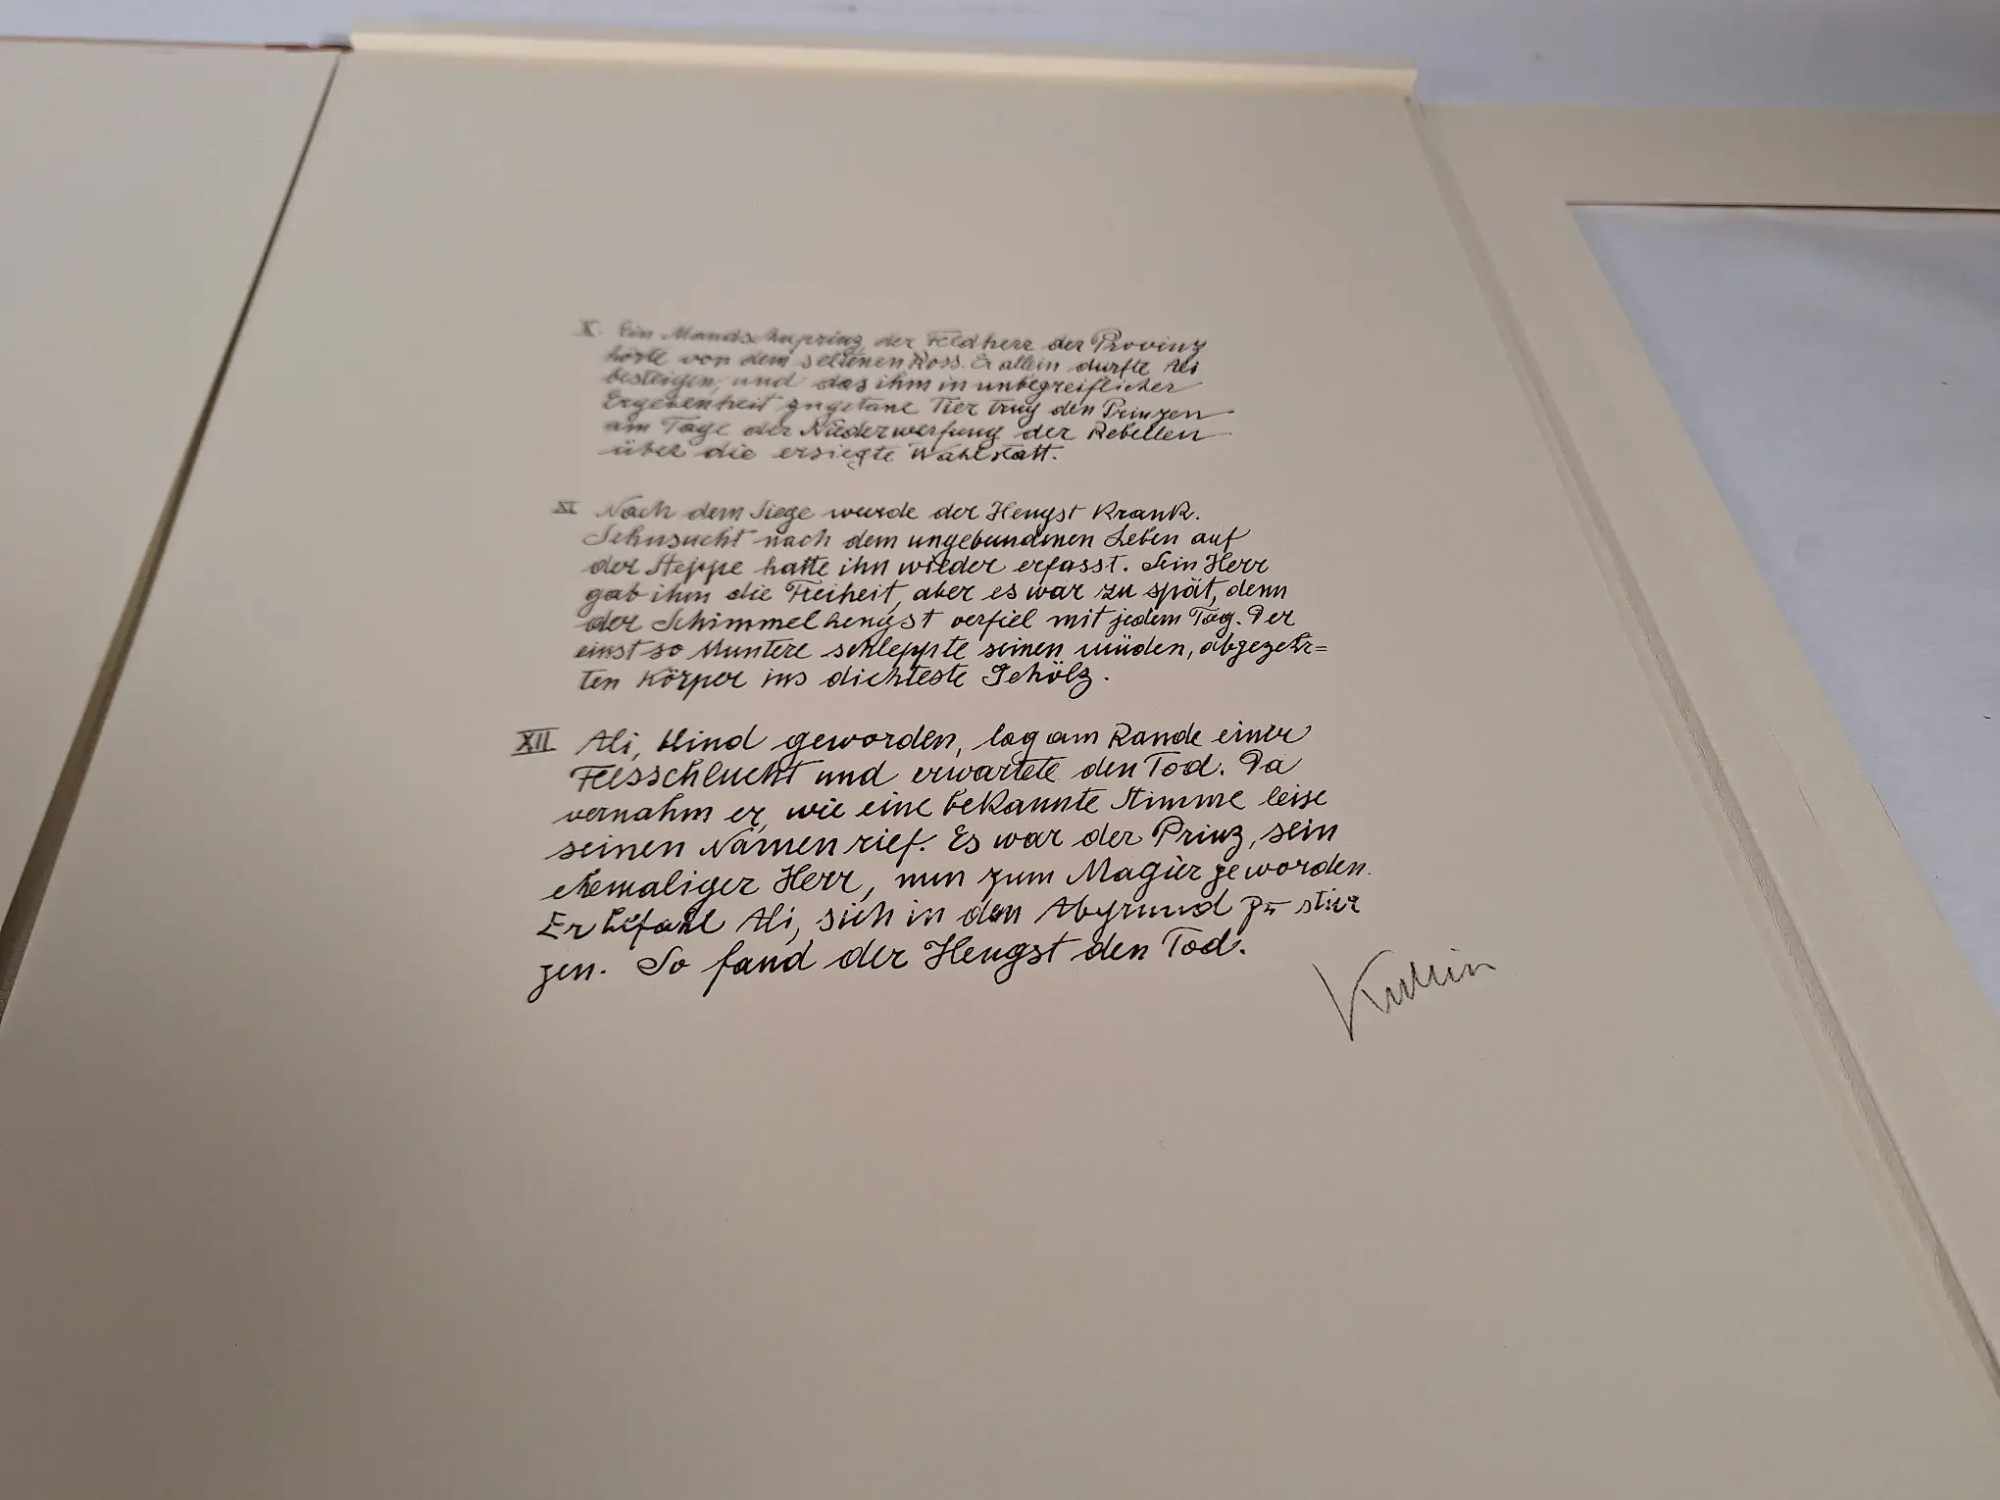 X. Ein Mandschuprinz, der Feldherr der Provinz
hörte von dem seltenen Ross. Er allein durfte Ali
besteigen, und das ihm in unbegreiflicher
Ergebenheit zugetane Tier trug den Prinzen
am Tage der Niederwerfung der Rebellen
über die ersiegte Wahlstatt.
XI Nach dem Siege wurde der Hengst krank.
Sehnsucht nach dem ungebundenen Leben auf
der Steppe hatte ihn wieder erfasst. Sein Herr
gab ihm die Freiheit, aber es war zu spät, denn
der Schimmelhengst verfiel mit jedem Tag. Der
einst so Muntere schleppte seinen müden, abgezehr=
ten Körper ins dichteste Gehölz.
XII Ali, blind geworden, lag am Rande einer
Felsschlucht und erwartete den Tod. Da
vernahm er, wie eine bekannte Stimme leise
seinen Namen rief. Es war der Prinz, sein
ehemaliger Herr, nun zum Magier geworden.
Er befahl Ali, sich in den Abgrund zu stür
zen. So fand der Hengst den Tod.
Kubin